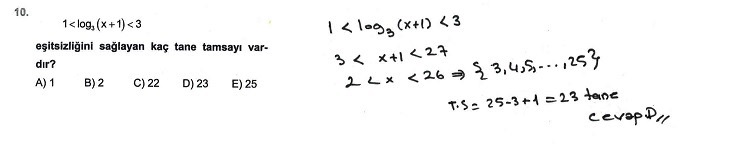 10.
1<log₃(x+1)<3
eşitsizliğini sağlayan kaç tane tamsayı var-
dır?
A) 1 B) 2 C) 22 D) 23 E) 25
1 < log₃(x+1) < 3
3 < x+1 < 27
2 < x < 26 ⇒ {3,4,5,...,25}
T.S = 25-3+1 = 23 tane
cevap D//